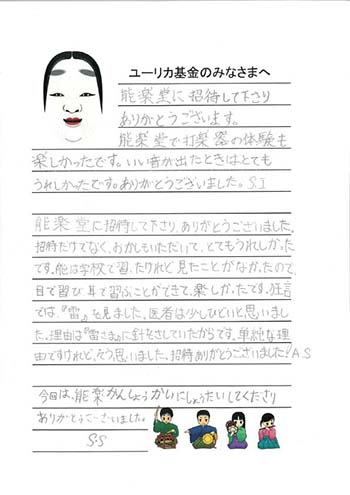 ユーリカ基金のみなさまへ
能楽堂に招待して下さり
ありがとうございます。
能楽堂で打楽器の体験も
楽しかったです。いい音が出たときはとても
うれしかったです。ありがとうございました。S.I
能楽堂に招待して下さり、ありがとうございました。
招待だけでなく、おかしもいただいて、とてもうれしかった
です。能は学校で習ったけれど見たことがなかったので、
目で習び耳で習ぶことができて、楽しかったです。狂言
では、『雷』を見ました。医者は少しひどいと思いまし
た。理由は『雷さま』に針をさしていたからです。単純な理
由ですけれど、そう思いました。招待ありがとうございました!A.S
今回は、能楽かんしょうかいにしょうたいしてくださり
ありがとうございました。
S.S